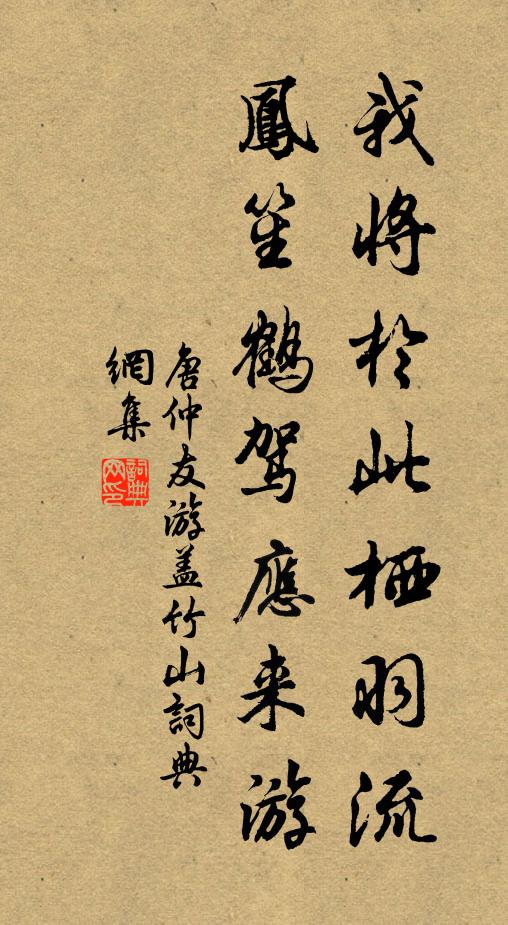 我將於此栖羽流
鳳笙鶴駕應来游
唐仲友游盖竹山詞典
網集
詞典網印